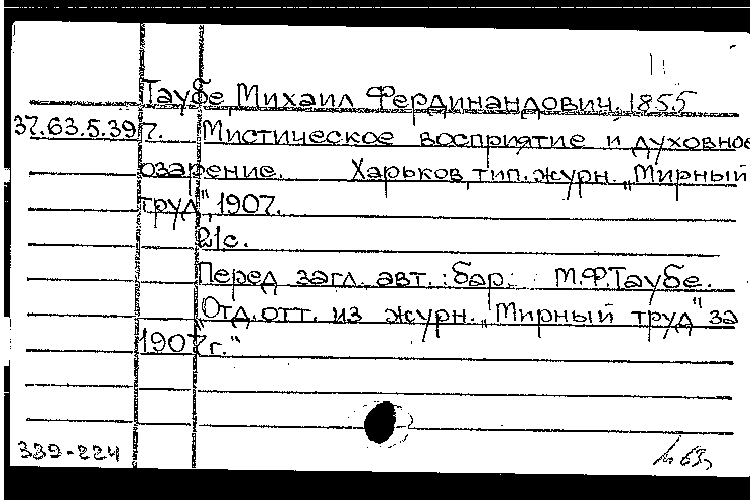 Таубе, Михаил Фердинандович, 1855
37.63.5.397. Мистическое восприятие и духовное
озарение. Харьков, тип. журн. „Мирный
труд", 1907.
21с.
Перед загл. авт.: бар. М.Ф.Таубе.
"Отд. отт. из журн. „Мирный труд" за
1907 г."
339-224